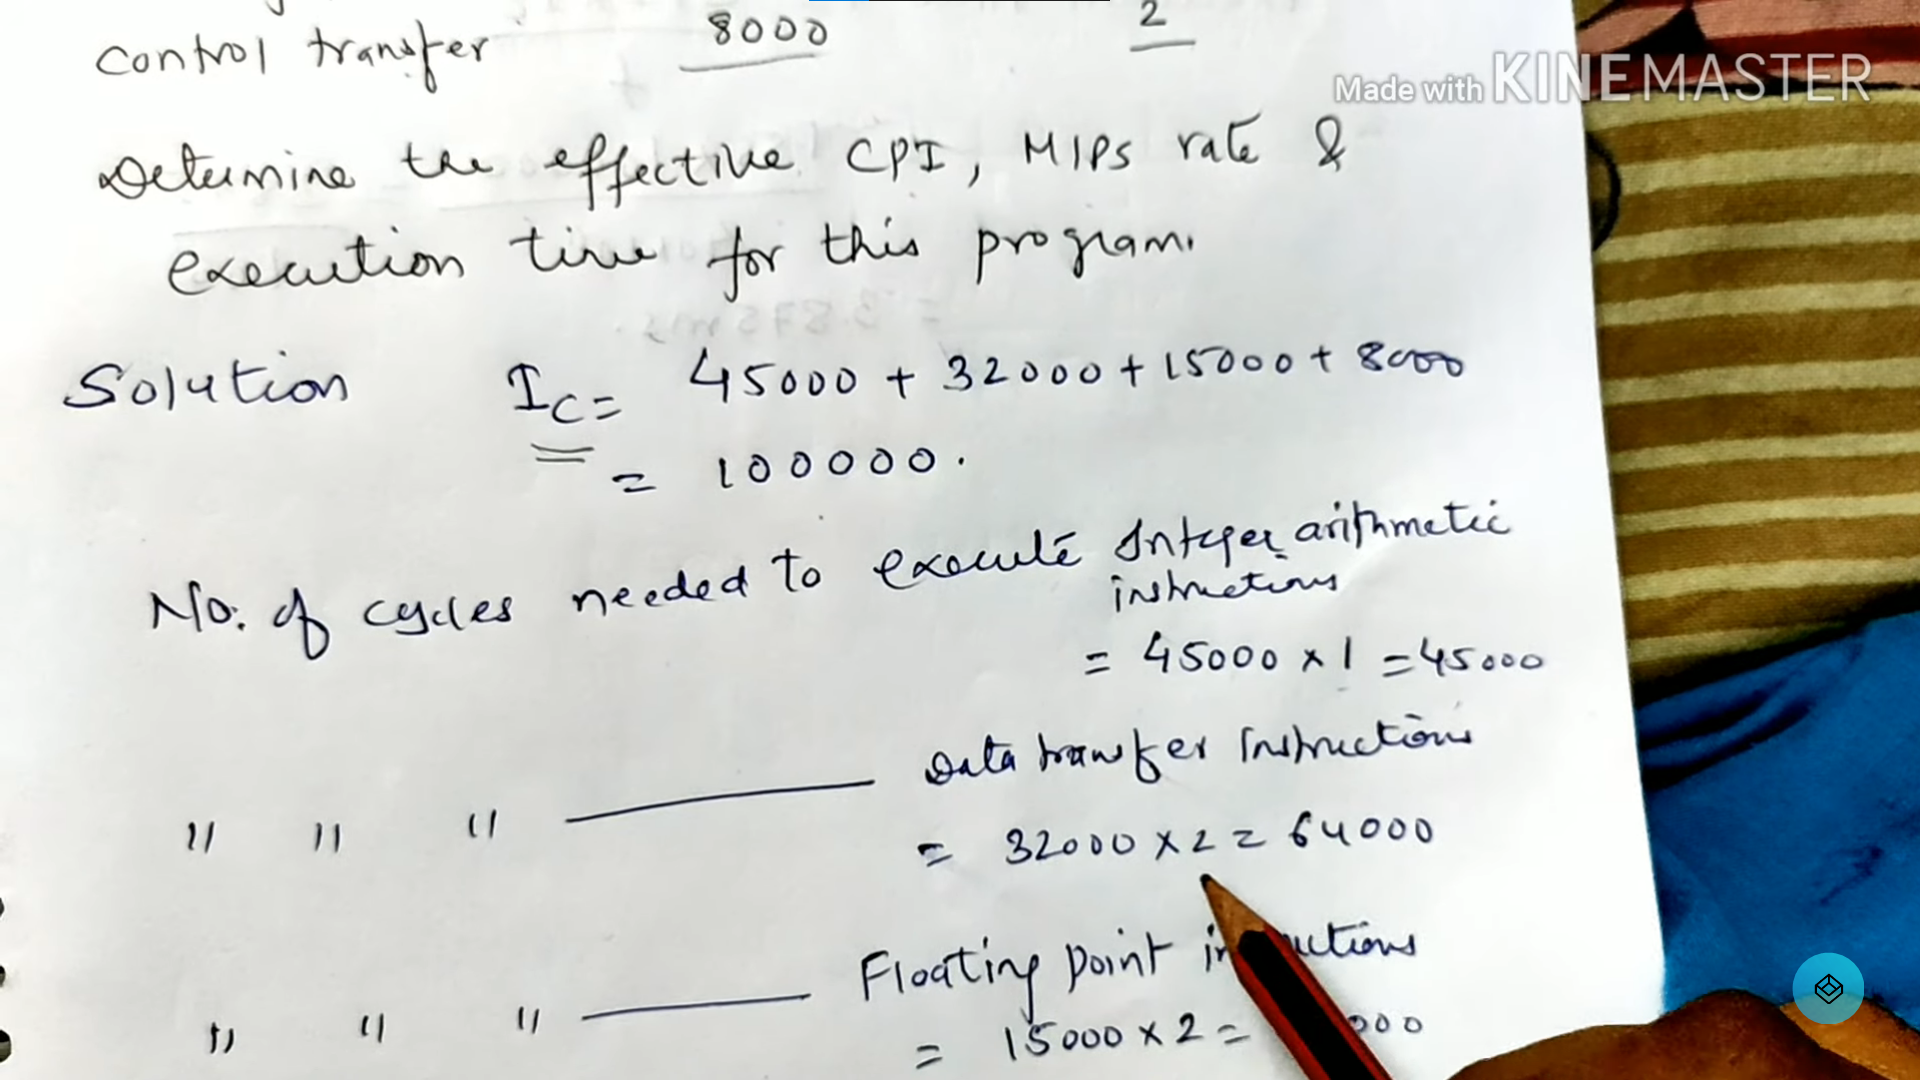 control transfer 8000 2
Made with KINEMASTER
Determine the effective CPI, MIPS rate &
execution time for this program.
Solution Ic = 45000 + 32000 + 15000 + 8000
= 100000.
No. of cycles needed to execute Integer arithmetic
instructions
= 45000 × 1 = 45000
Data transfer Instructions
" " "
= 32000 × 2 = 64000
Floating point
" " "
= 15000 × 2 =